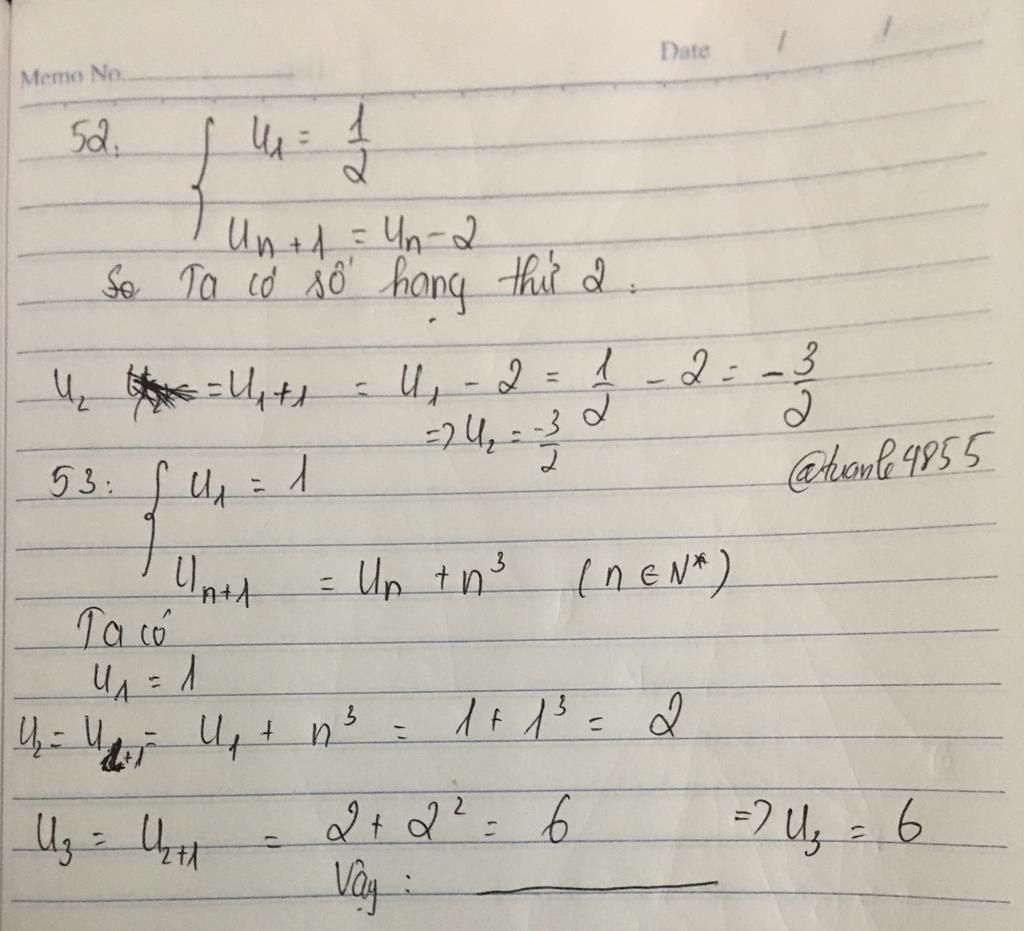 Memo No. Date / /
52. { u₁ = 1/2
uₙ₊₁ = uₙ - 2
Ta có số hạng thứ 2 :
u₂ = u₁₊₁ = u₁ - 2 = 1/2 - 2 = -3/2
=> u₂ = -3/2
@tuanle4855
53: { u₁ = 1
uₙ₊₁ = uₙ + n³ (n ∈ N*)
Ta có
u₁ = 1
u₂ = u₁₊₁ = u₁ + n³ = 1 + 1³ = 2
u₃ = u₂₊₁ = 2 + 2² = 6 => u₃ = 6
Vậy :